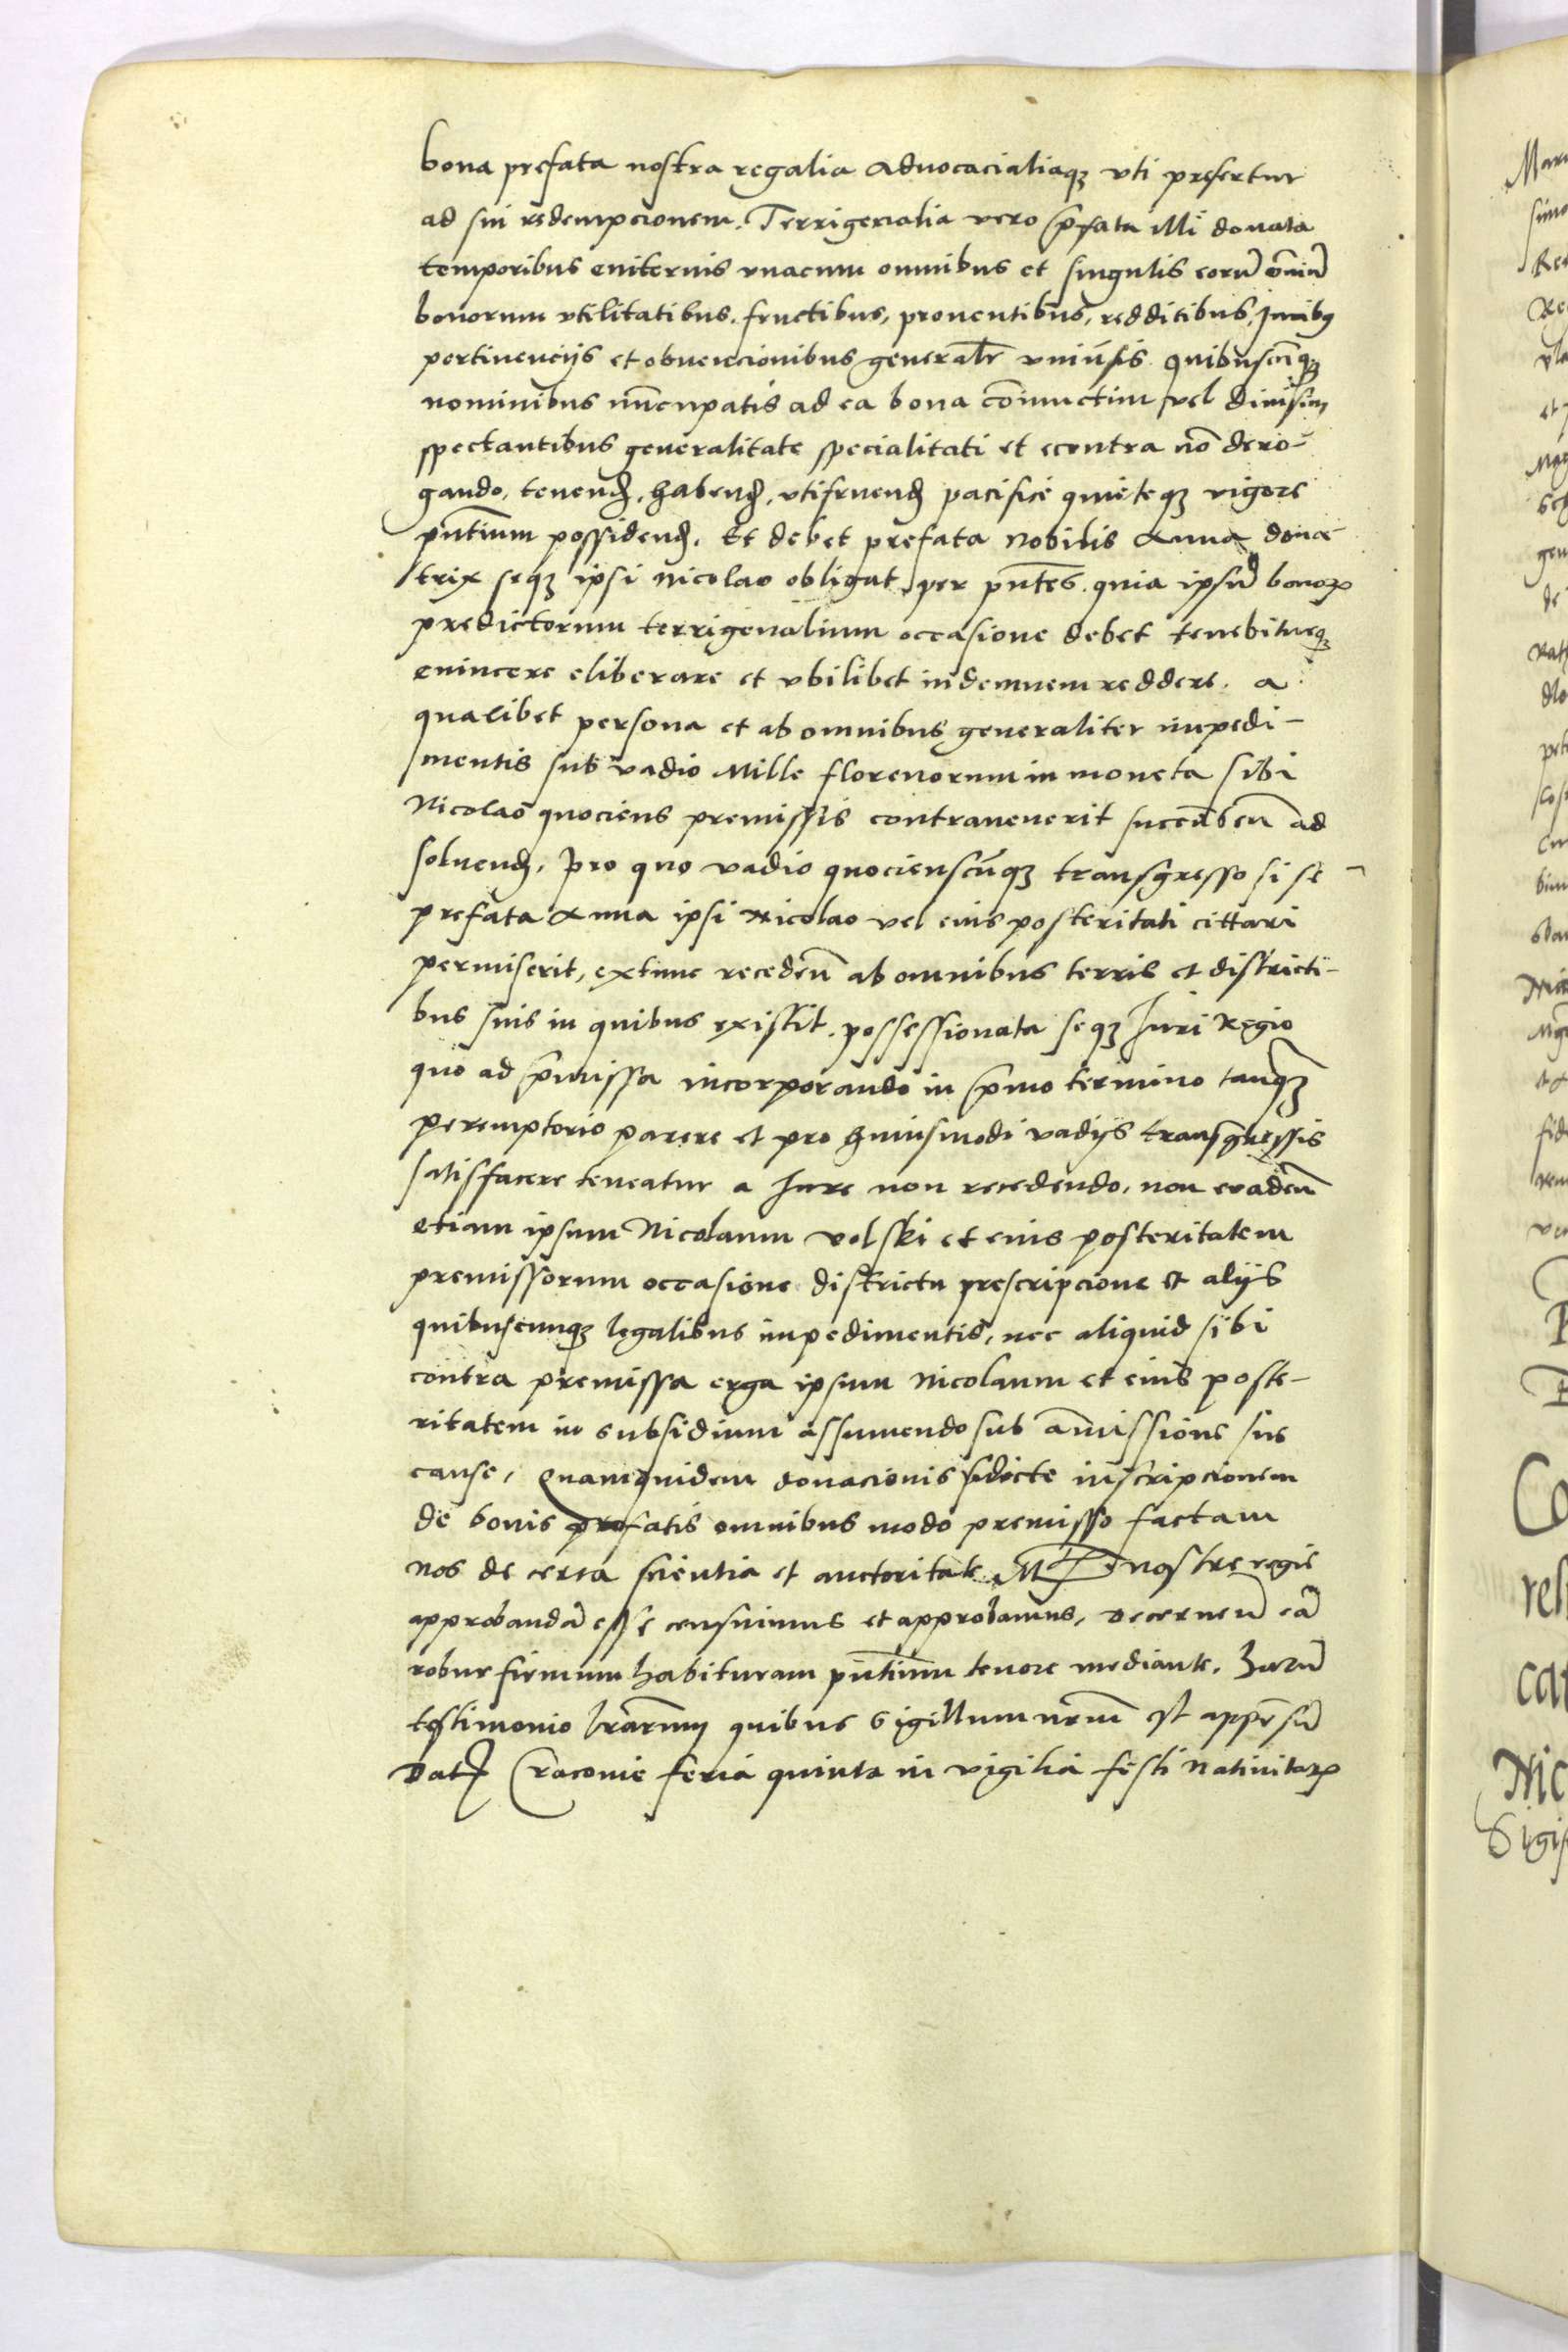 bona prefata nostra regalia aduocacialiaqꝫ vti prefertur
ad sui redempcionem. Terrigenalia vero p̄fata illi donata
temporibus eniternis vnacum omnibus et singulis eorū om̄iū
bonorum vtilitatibus, fructibus, prouentibus, redditibus, Juribꝯ
pertinencijs et obuencionibus generalr̄ vniūsis quibuscūqꝫ
nominibus nūcupatis ad ea bona cōiunctim vel diuisim
spectantibus generalitate specialitati et econtra nō dero-
gando, tenenđ, habenđ, vtifruenđ pacifice quieteqꝫ vigore
pn̄tium possidenđ. Et debet prefata Nobilis Anna dona-
trix seqꝫ ipsi Nicolao obligat per pn̄tes. quia ipsū bonoꝝ
predictorum terrigenalium occasione debet tenebiturqꝫ
euincere eliberare et vbilibet indemnem reddere. a
qualibet persona et ab omnibus generaliter impedi-
mentis sub vadio Mille florenorum in moneta sibi
Nicolao quociens premissis contrauenerit succūben̄ ad
soluenđ. Pro quo vadio quocienscūqꝫ transgresso si se
prefata Anna ipsi Nicolao vel eius posteritati cittari
permiserit, extunc receden̄ ab omnibus terris et districti-
bus suis in quibus existit possessionata seqꝫ Juri Regio
quo ad p̄missa incorporando in p̄mo termino tanqꝫ
peremptorio parere et pro huiusmodi vadijs transgressis
satisfacere teneatur a Jure non recedendo, non evaden̄
etiam ipsum Nicolaum volski et eius posteritatem
premissorum occasione districtu prescripcione et alijs
quibuscunqꝫ legalibus impedimentis, nec aliquid sibi
contra premissa erga ipsum Nicolaum et eius poste-
ritatem in subsidium assumendo sub amissione sue
cause, Quamquidem donacionis inscripcionem
de bonis prefatis omnibus modo premisso factam
nos de certa scientia et auctoritate nostre regie
approbandā esse censuimus et approbamus, decernen̄ eā
robur firmum habituram pn̄tium tenore mediante. Harū
testimonio lrārum quibus Sigillum nrūm est appēsū
Dat Cracouie feria quinta in vigilia festi Natiuitaꝝ